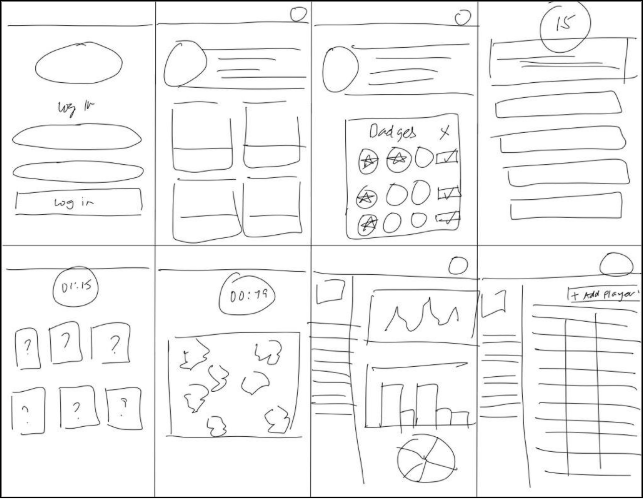 Log In
Log in
Badges X
15
01:15
? ? ?
? ? ?
00:79
+ Add Player